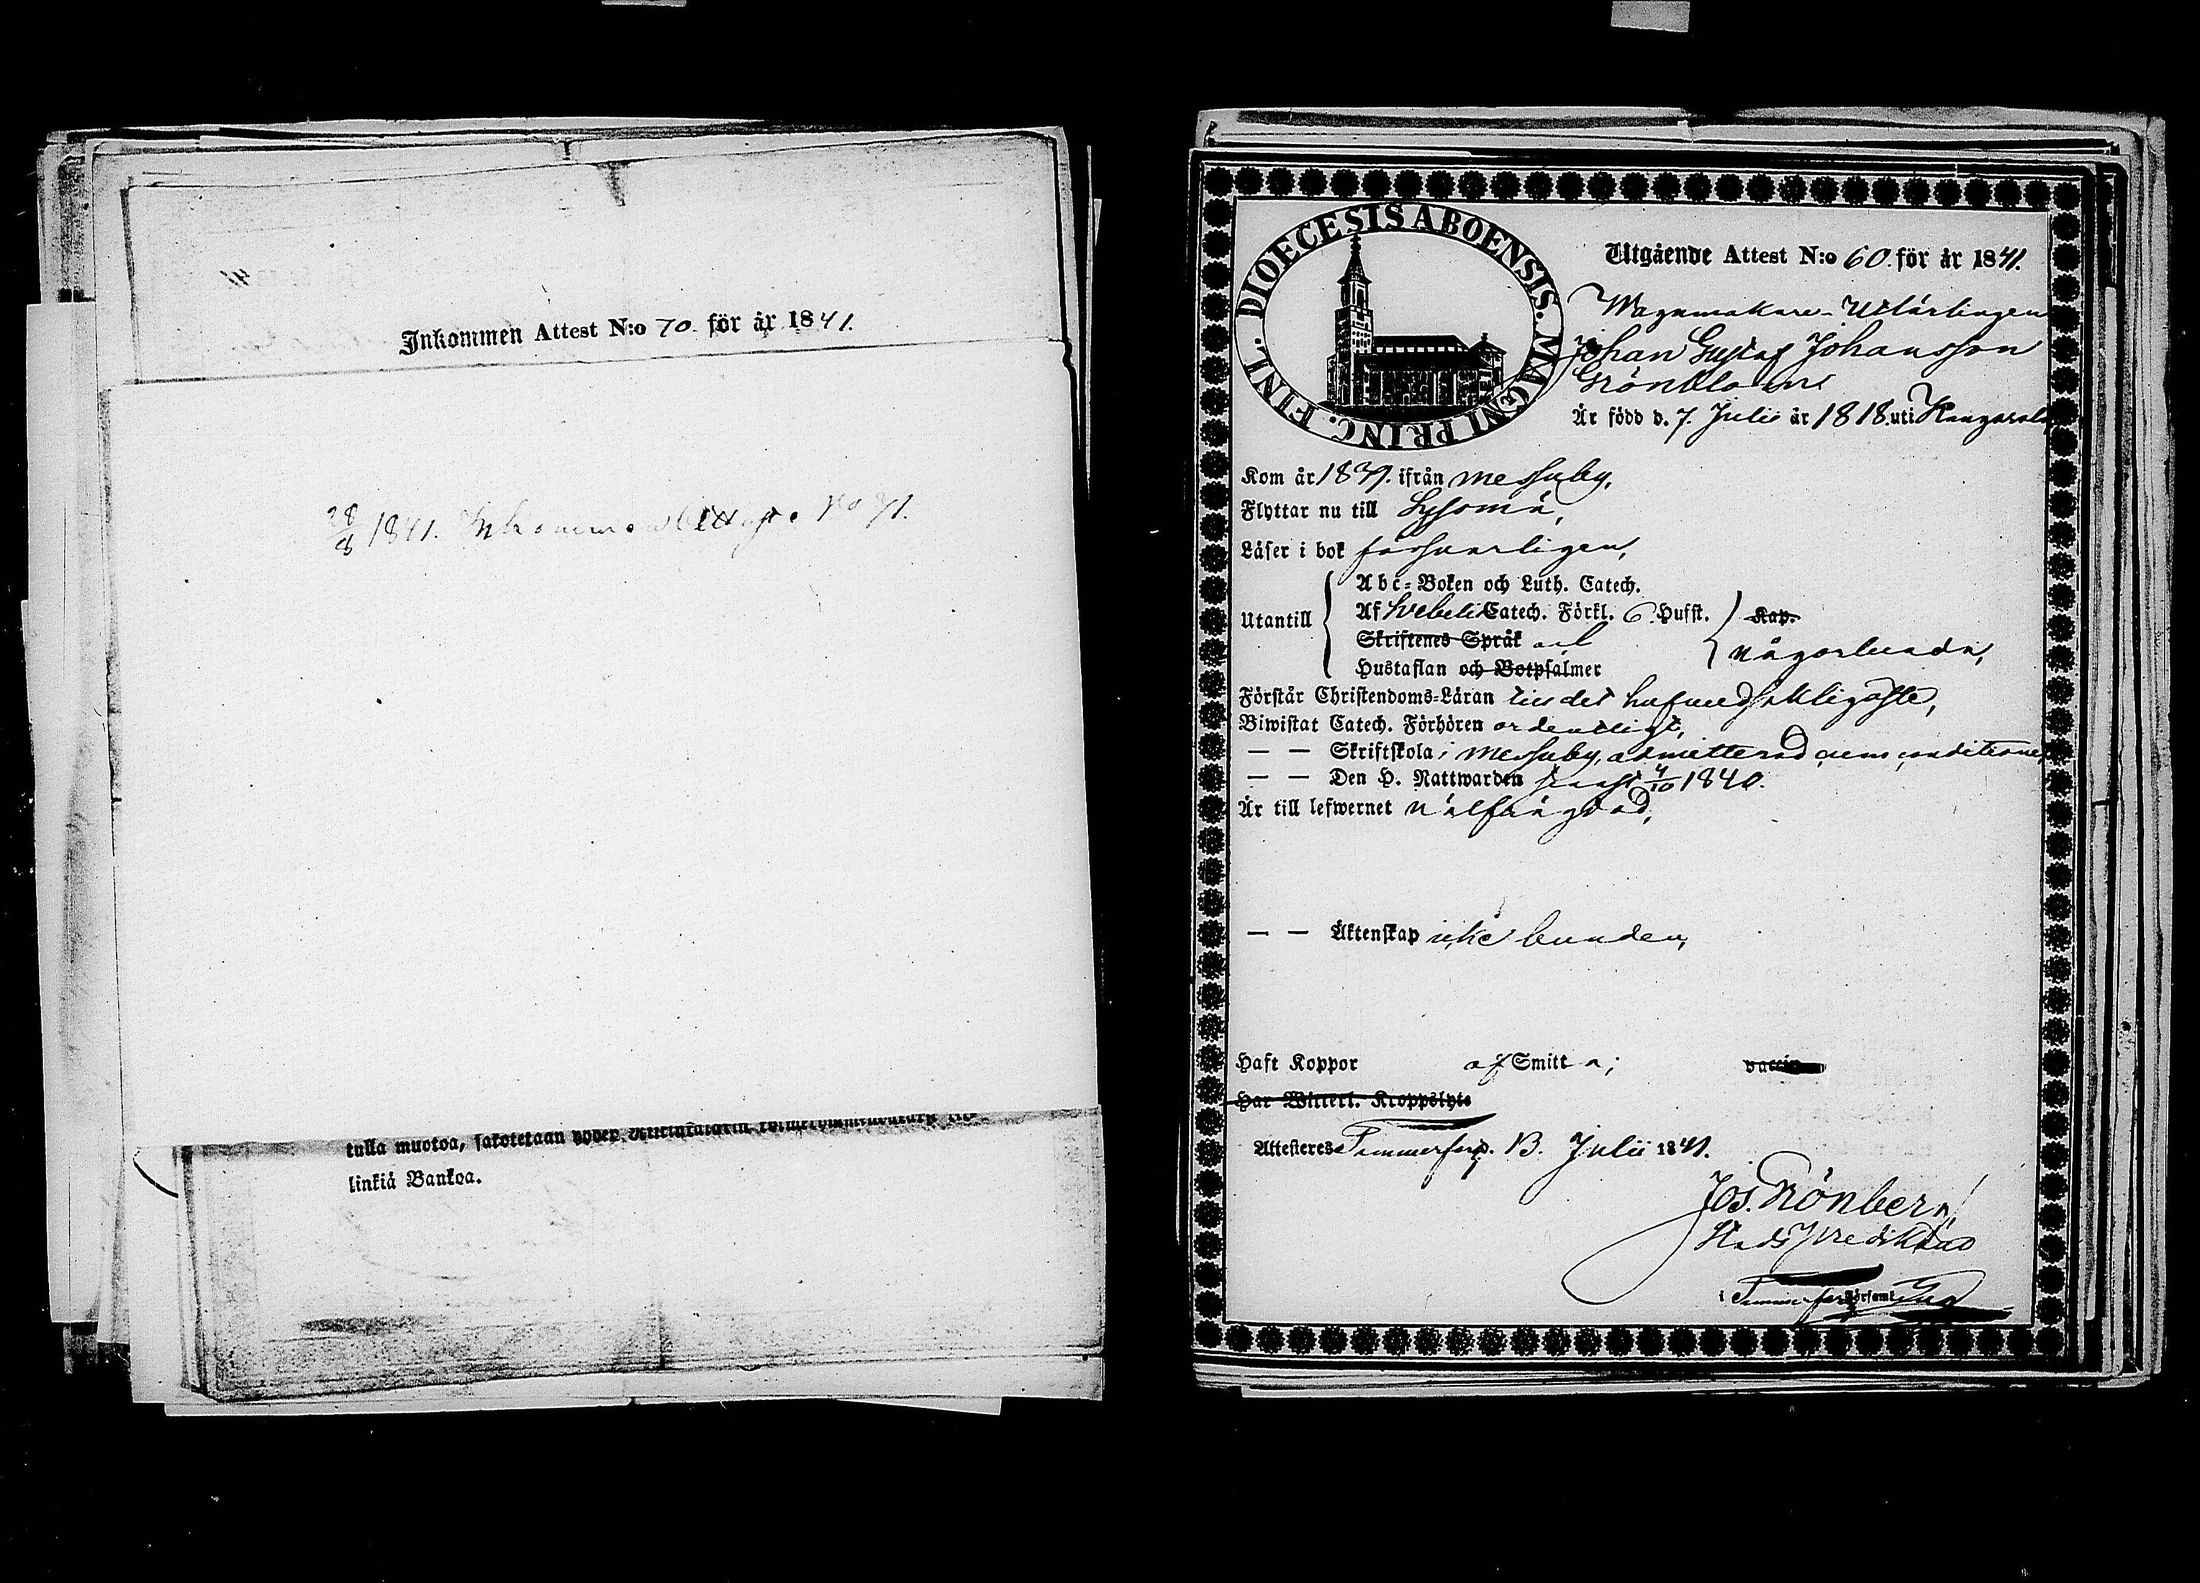 Inkommen Attest N:o 70. för år 1841.
28/8 1841. Inkommen Attest No 71.
tulla muotoa, sakotetaan
linkiä Bankoa.
DIOECESIS ABOENSIS. MAGNI PRINC. FINL.
Utgående Attest N:o 60. för år 1841.
Wagnmakare-Utlärlingen
Johan Gustaf Johansson
Grönblom
Är född d. 7. Julii år 1818. uti Kangasala
Kom år 1839. ifrån Messuby,
Flyttar nu till
Läser i bok försvarligen,
Abc-Boken och Luth. Catech.
Utantill Af Svebelii Catech. Förkl. 6. Hufst. Kap.
Skriftenes Språk och någorlunda,
Hustaflan och Botpsalmer
Förstår Christendoms-Läran till det hufvudsakligaste,
Biwistat Catech. Förhören ordentligt,
— — Skriftskola i Messuby, admitterad cum conditione
— — Den H. Nattwarden senast 4/10 1840.
Är till lefwernet välfrägdad,
— — Äktenskap icke bunden,
Haft Koppor af Smitta; vaccin
Har Witterl. Kroppslyte
Attesteres Tammerfors d. 13. Julii 1841.
Jos. Grönberg,
Stads Predikant
i Tammerfors församl.